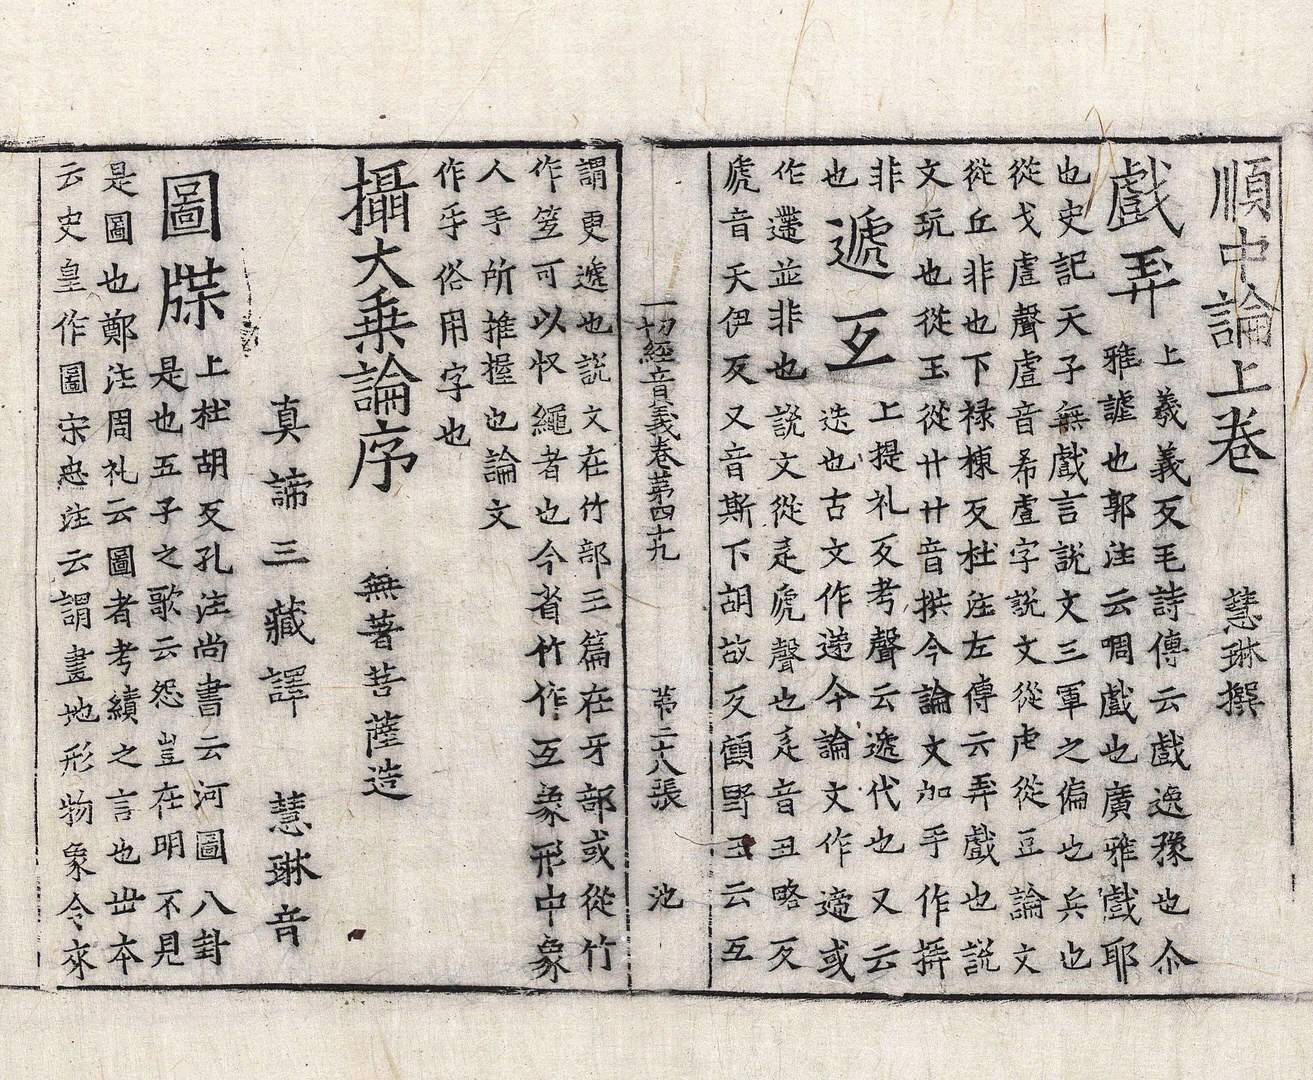 順中論上卷 慧琳撰
戲弄 上羲義反毛詩傳云戲逸豫也尒
雅謔也郭注云啁戲也廣雅戲耶
也史記天子無戲言說文三軍之偏也兵也
從戈䖒聲䖒音希䖒字說文從虍從豆論文
從丘非也下祿棟反杜注左傳云弄戲也說
文玩也從玉從廾廾音拱今論文加手作挊
非
也 遞互 上提礼反考聲云遞代也又云
迭也古文作递今論文作遆或
作𨔛並非也說文從辵虒聲也辵音丑略反
虒音天伊反又音斯下胡故反顧野王云互
一切經音義卷第四十九 第二十八張 池
謂更遞也說文在竹部三篇在牙部或從竹
作笠可以收繩者也今省竹作互象形中象
人手所推握也論文
作㸦俗用字也
攝大乘論序 無著菩薩造
真諦三藏譯 慧琳音
圖牒 上杜胡反孔注尚書云河圖八卦
是也五子之歌云怨豈在明不見
是圖也鄭注周礼云圖者考績之言也丗本
云史皇作圖宋忠注云謂畫地形物象令來